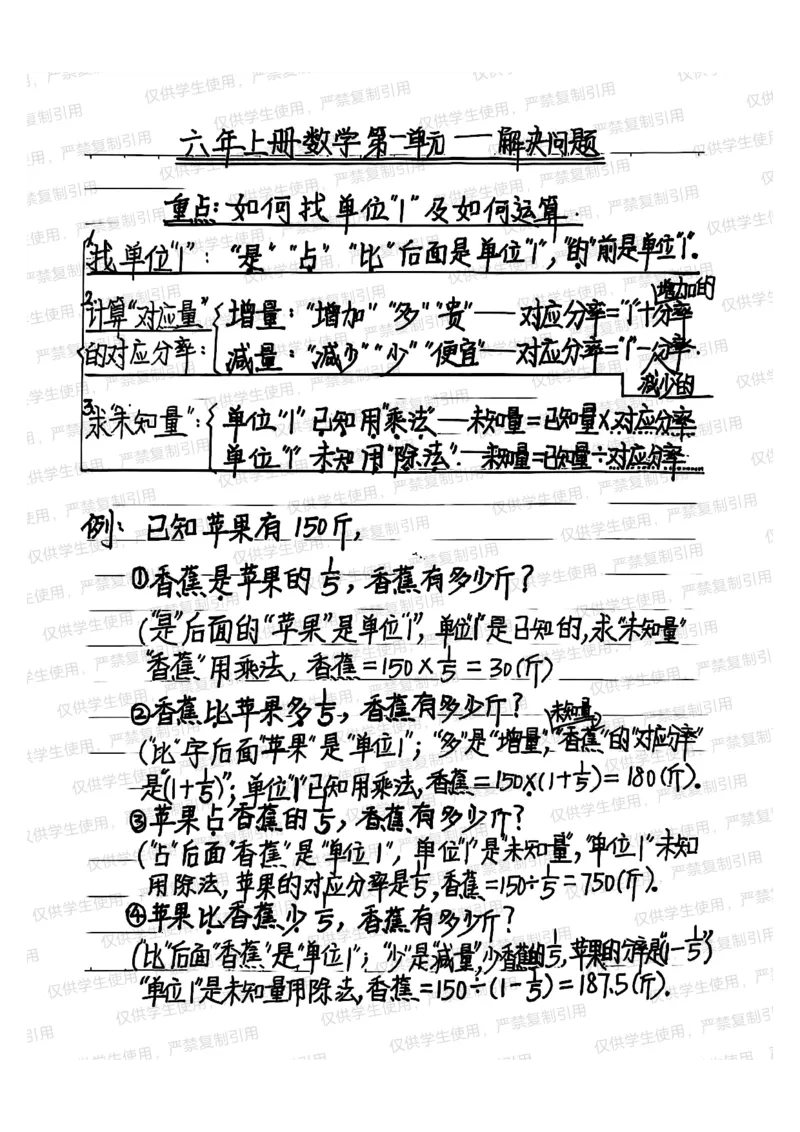 六年上册数学第一单元——解决问题
重点：如何找单位"1"及如何运算.
1 找单位"1"："是" "占" "比"后面是单位"1"，"的"前是单位"1".
2 计算"对应量"的对应分率：
增量："增加" "多" "贵"——对应分率="1"+分率 增加的
减量："减少" "少" "便宜"——对应分率="1"-分率. 减少的
3 求"未知量"：
单位"1"已知用"乘法"——未知量=已知量×对应分率
单位"1"未知用"除法"——未知量=已知量÷对应分率
例：已知苹果有150斤,
①香蕉是苹果的1/5，香蕉有多少斤？
("是"后面的"苹果"是单位"1"，单位"1"是已知的,求"未知量"
"香蕉"用乘法，香蕉=150×1/5=30(斤)
②香蕉比苹果多1/5，香蕉有多少斤？ 未知量
("比"字后面"苹果"是"单位1"；"多"是"增量"，"香蕉"的"对应分率"
是"(1+1/5)"；单位"1"已知用乘法,香蕉=150×(1+1/5)=180(斤).
③苹果占香蕉的1/5，香蕉有多少斤？
("占"后面"香蕉"是"单位1"，单位"1"是"未知量"，"单位1"未知
用除法,苹果的对应分率是1/5,香蕉=150÷1/5=750(斤).
④苹果比香蕉少1/5，香蕉有多少斤？
("比"后面"香蕉"是"单位1"；"少"是"减量"，少香蕉的1/5,苹果的分率是"(1-1/5)"
"单位1"是未知量用除法,香蕉=150÷(1-1/5)=187.5(斤).
仅供学生使用，严禁复制引用